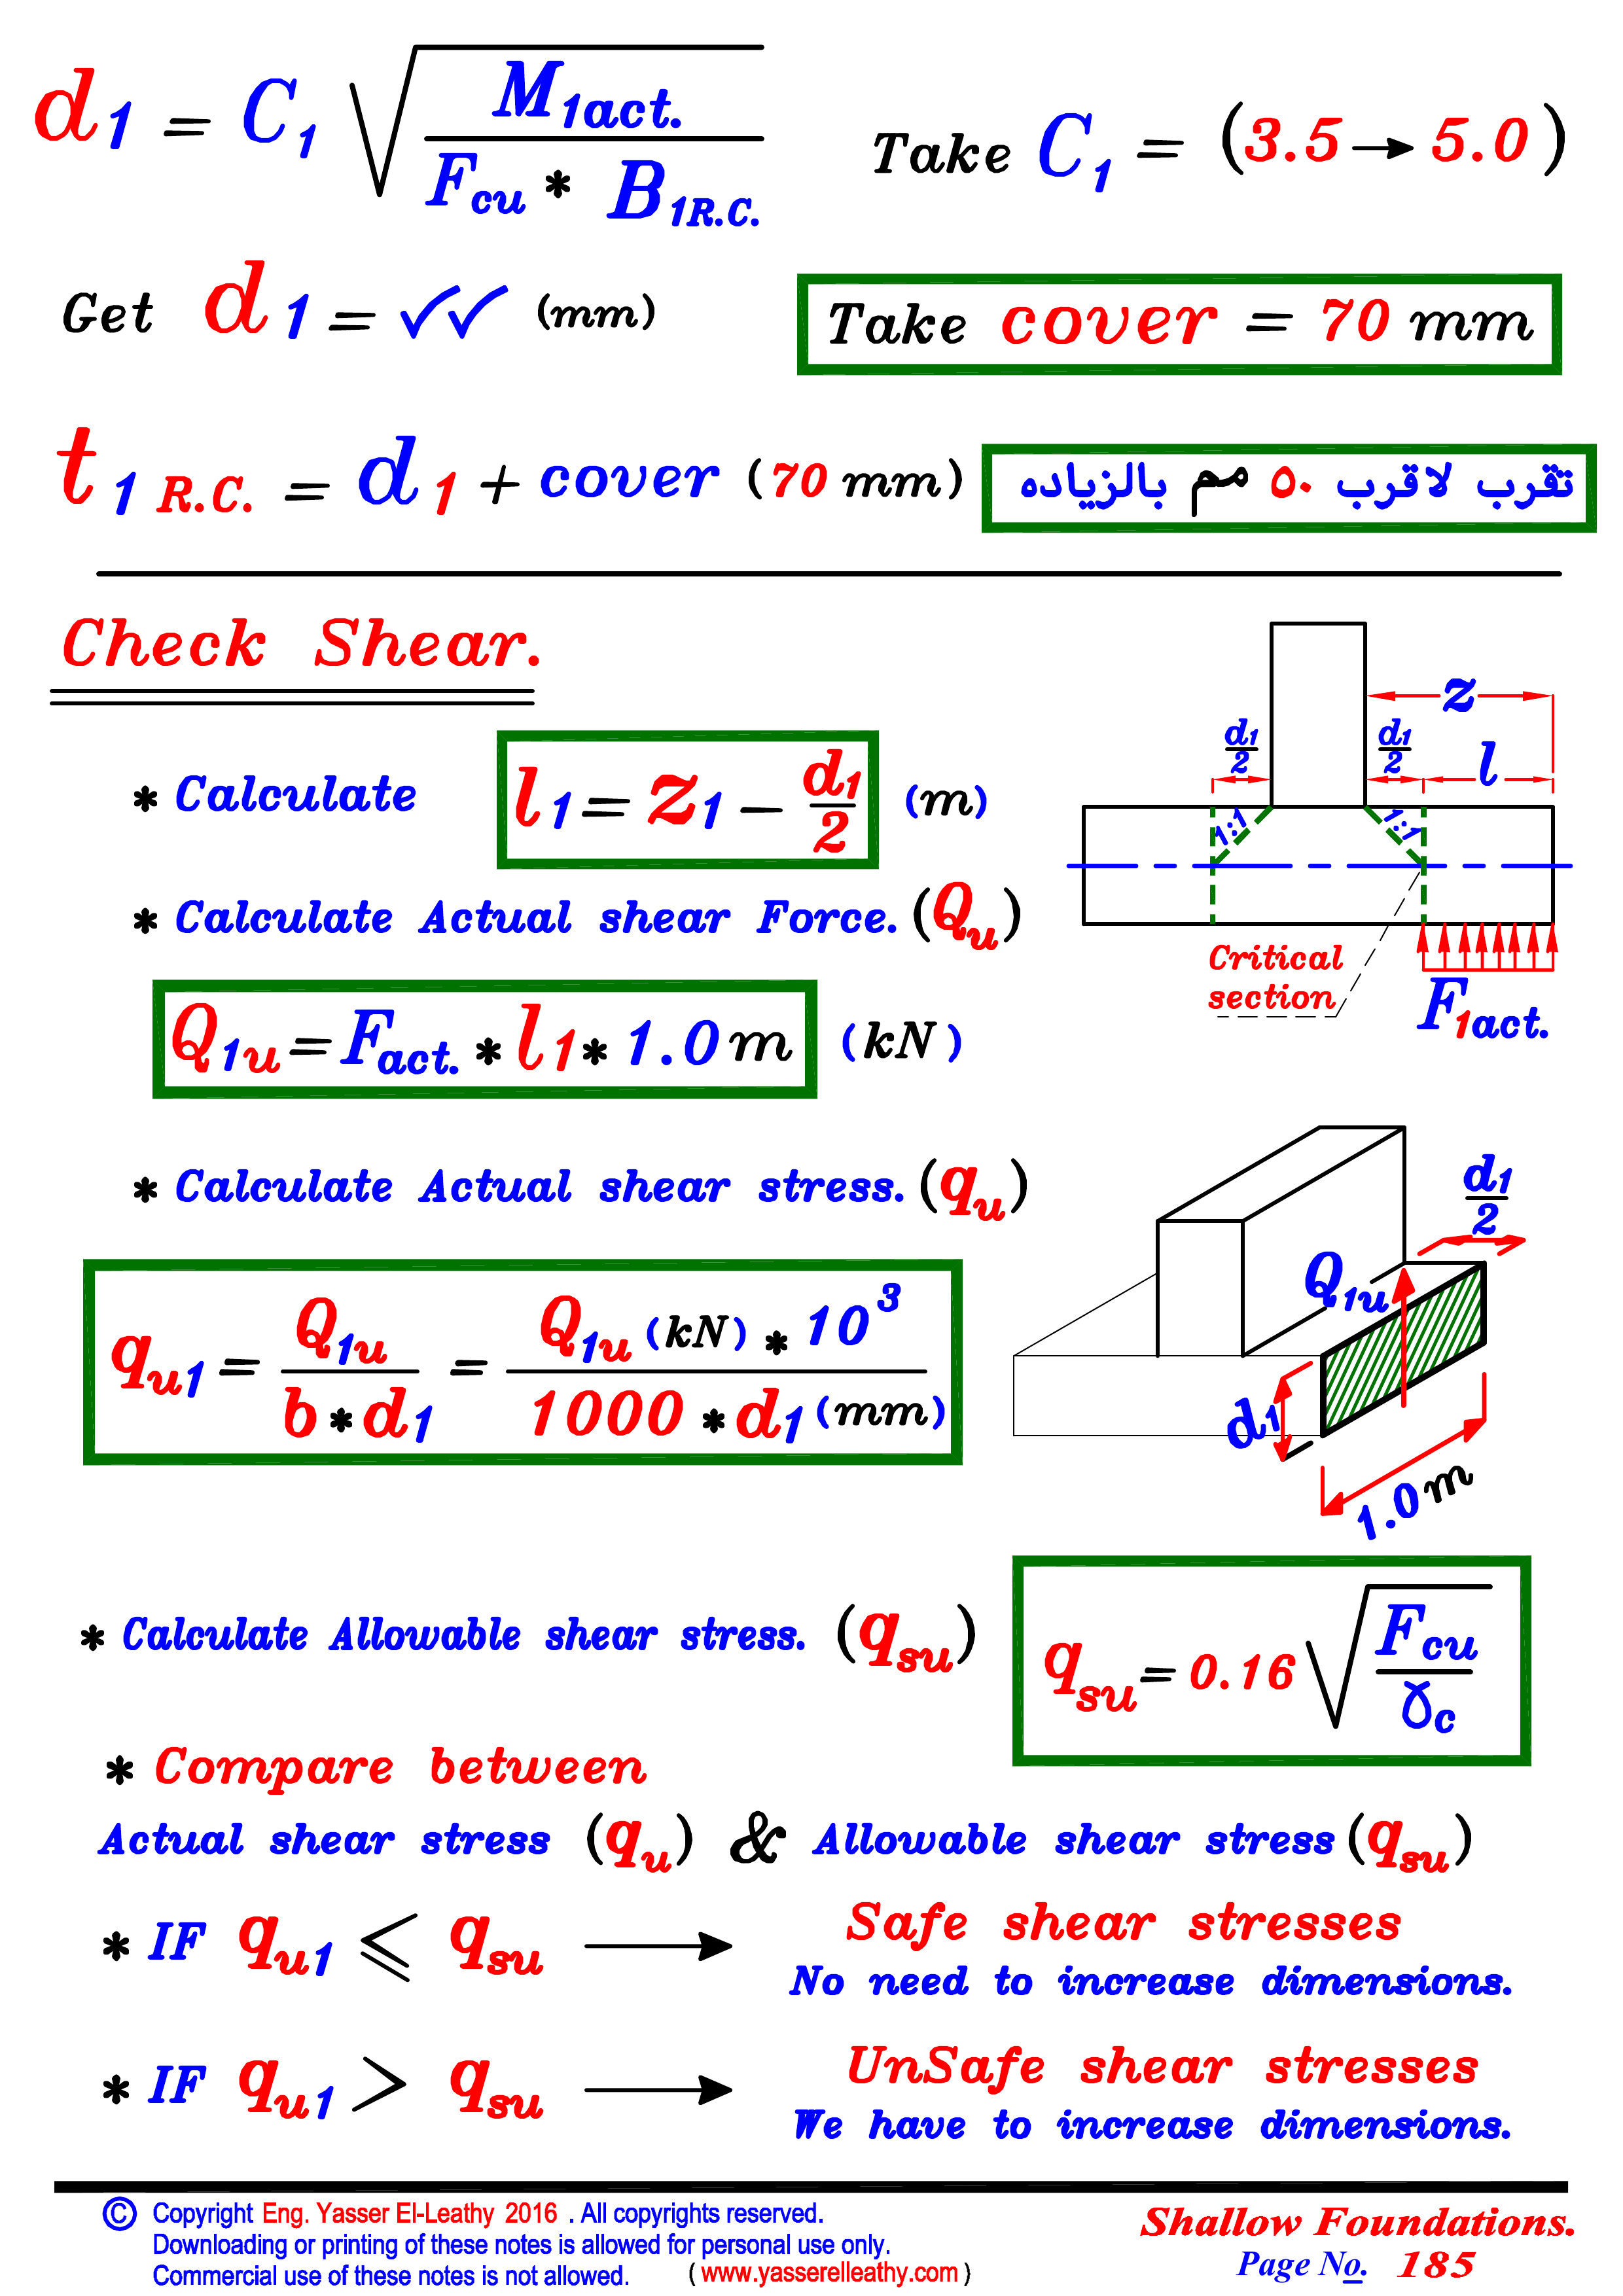 d1 = C1 √(M1act. / Fcu * B1R.C.) Take C1 = (3.5 → 5.0)
Get d1 = ✓✓ (mm) Take cover = 70 mm
t1 R.C. = d1 + cover (70 mm) تقرب لاقرب ٥٠ مم بالزياده
Check Shear.
* Calculate l1 = z1 - d1/2 (m)
z
d1/2 d1/2 l
1:1 1:1
Critical
section
F1act.
* Calculate Actual shear Force. (Qu)
Q1u = Fact. * l1 * 1.0 m (kN)
* Calculate Actual shear stress. (qu)
qu1 = Q1u / b * d1 = Q1u (kN) * 10³ / 1000 * d1 (mm)
d1/2
Q1u
d1
1.0 m
* Calculate Allowable shear stress. (qsu) qsu = 0.16 √(Fcu / γc)
* Compare between
Actual shear stress (qu) & Allowable shear stress (qsu)
* IF qu1 ⩽ qsu → Safe shear stresses
No need to increase dimensions.
* IF qu1 > qsu → UnSafe shear stresses
We have to increase dimensions.
© Copyright Eng. Yasser El-Leathy 2016 . All copyrights reserved.
Downloading or printing of these notes is allowed for personal use only.
Commercial use of these notes is not allowed. ( www.yasserelleathy.com )
Shallow Foundations.
Page No. 185